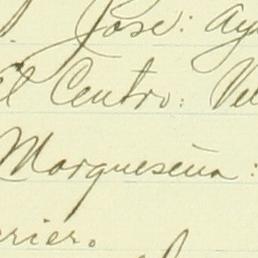 Jose: Ay
El Centro: Vel
Marqueseña:
rier.